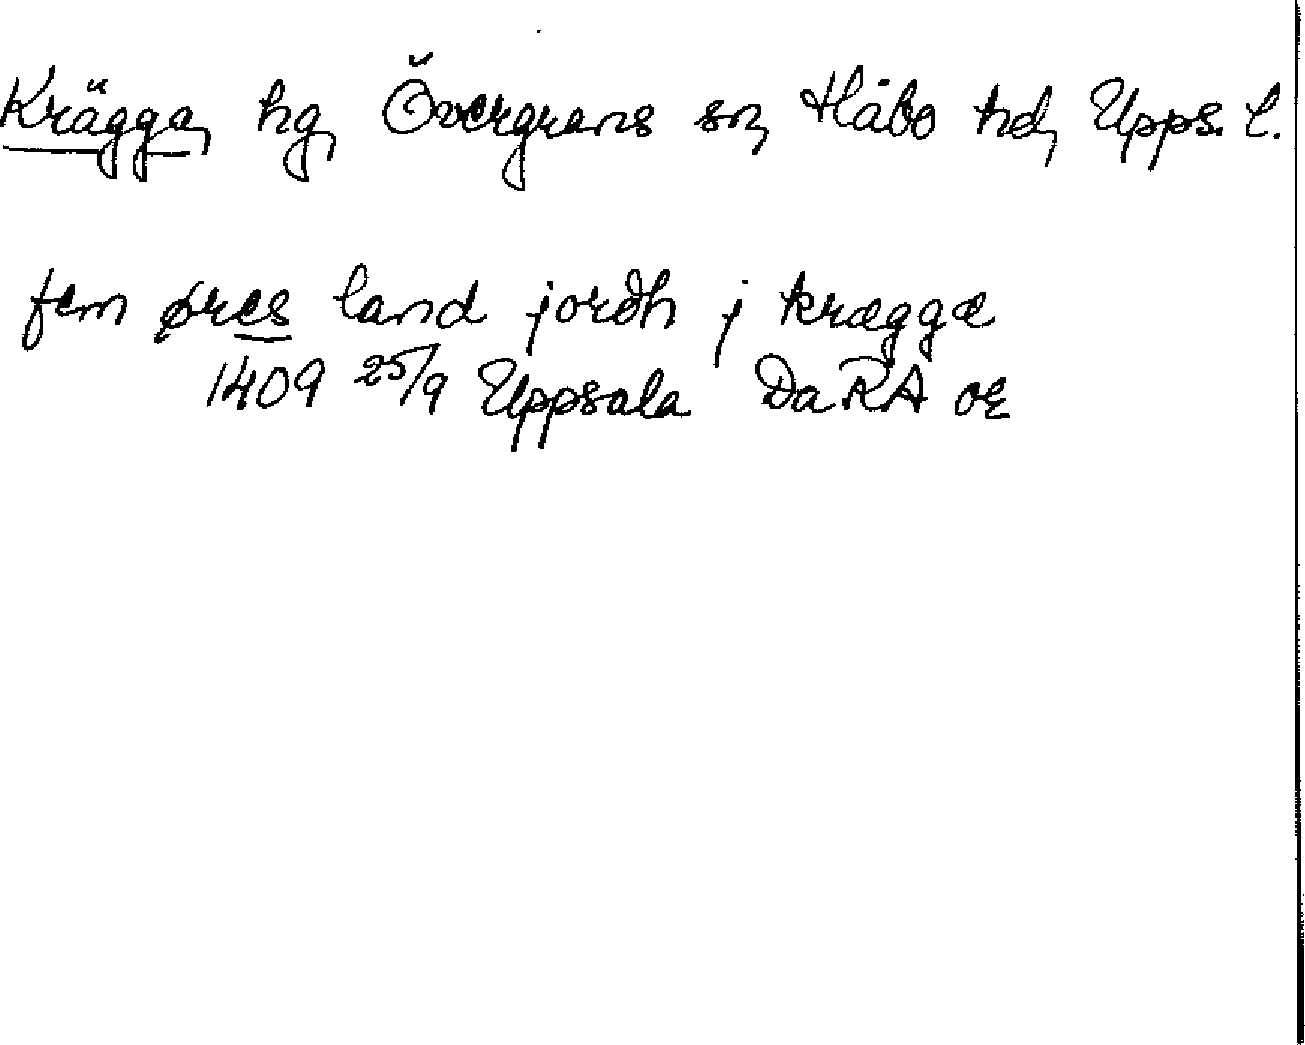 Krägga, hg, Övergrans sn, Håbo hd, Upps. l.
fem øres land jordh j kræggæ
1409 25/9 Uppsala DaRA or